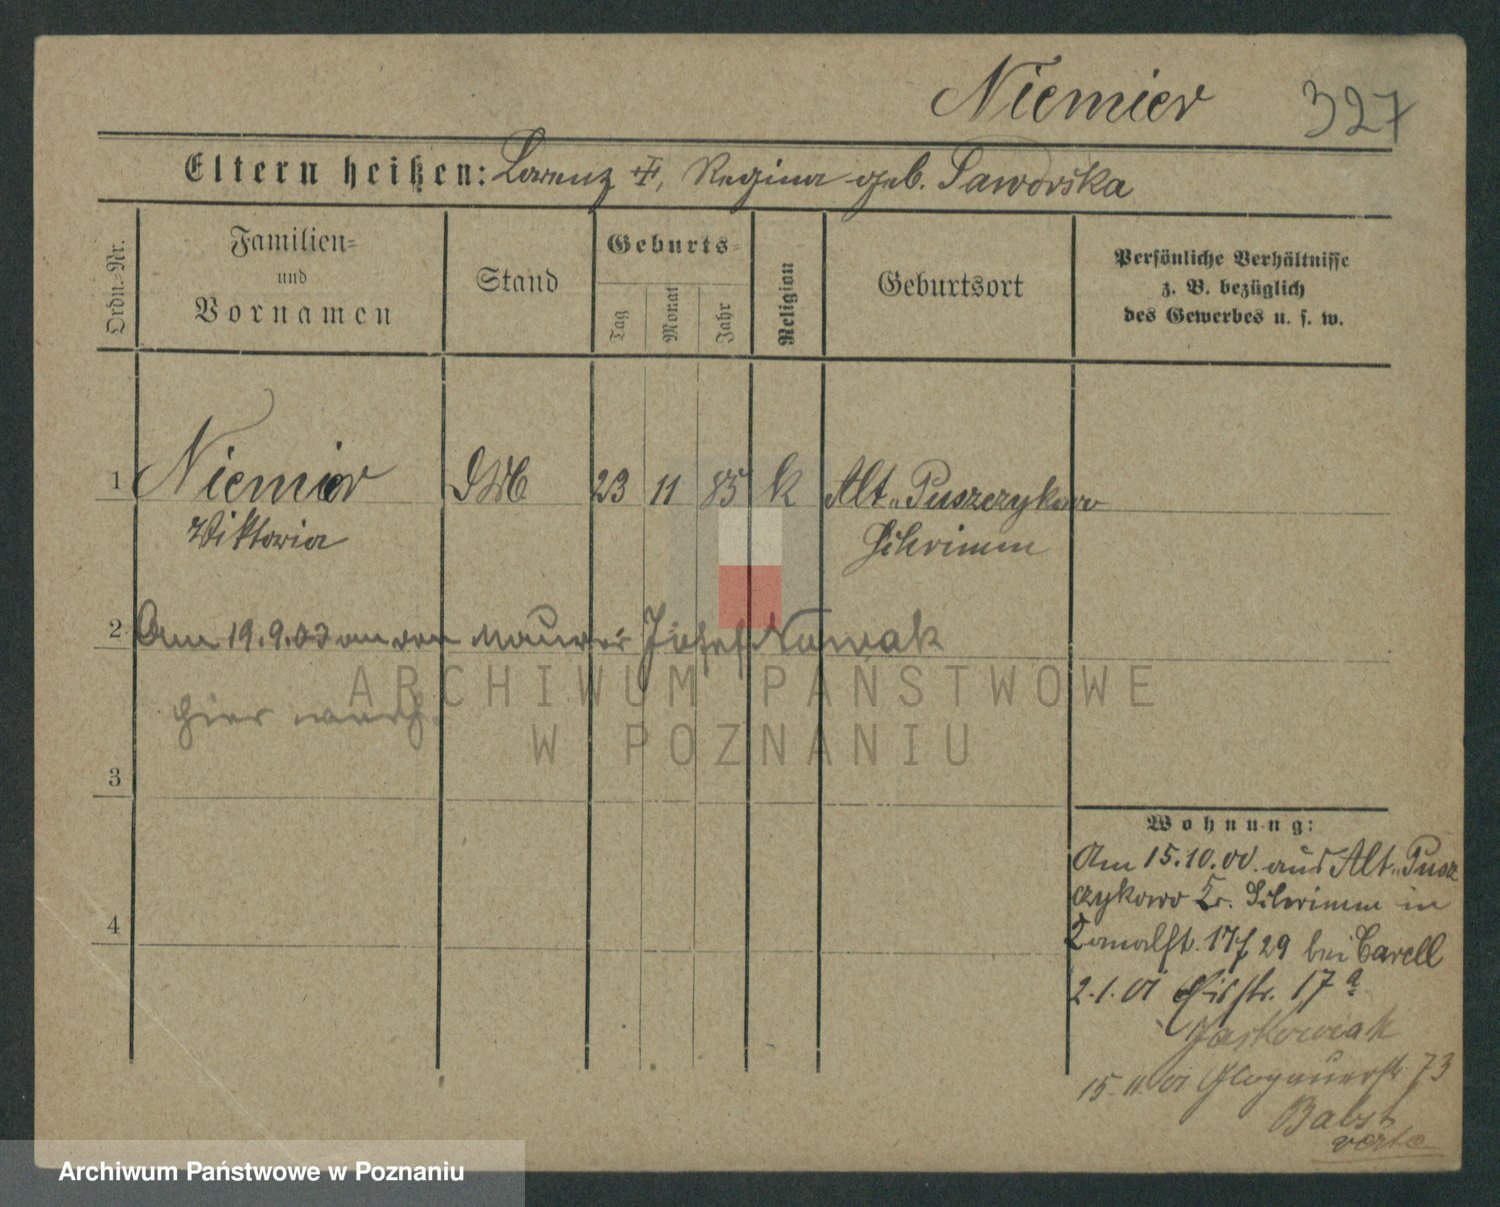 Niemier 327
Eltern heißen: Lorenz ‡, Regina geb. Saworska
Ordn.-Nr.
Familien-
und
Vornamen
Stand
Geburts-
Tag
Monat
Jahr
Religion
Geburtsort
Persönliche Verhältnisse
z. B. bezüglich
des Gewerbes u. s. w.
1 Niemier 23 11 85 k Alt-Puszczykowo
Viktoria Schrimm
2 Am 19.9.03 an den Maurer Josef Nowak
hier verh.
3
4
Wohnung:
Am 15.10.00. aus Alt-Pusz
czykowo Kr. Schrimm in
Kanalst. 17 29 bei Carell
2.1.01 17a
Jaskowiak
15.11.01 Glogauerstr. 73
Babst
verte
ARCHIWUM PAŃSTWOWE
W POZNANIU
Archiwum Państwowe w Poznaniu